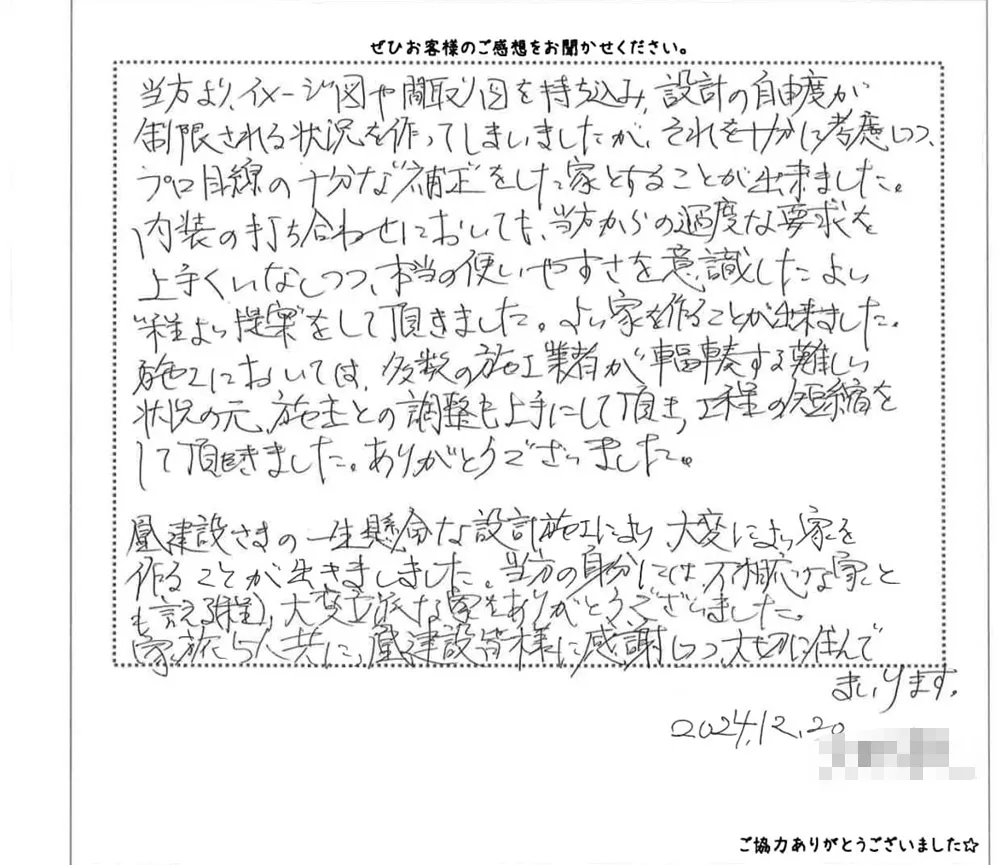 ぜひお客様のご感想をお聞かせください。
当方より、イメージ図や間取り図を持ち込み、設計の自由度が
制限される状況を作ってしまいましたが、それを十分に考慮しつつ、
プロ目線の十分な"補正"をした家とすることが出来ました。
内装の打ち合わせにおいても、当方からの過度な要求を
上手くいなしつつ、本当の使いやすさを意識したよい
"程よい提案"をして頂きました。よい家を作ることが出来ました。
施工においては、多数の施工業者が輻輳する難しい
状況の元、施主との調整も上手にして頂き、工程の短縮を
して頂きました。ありがとうございました。
凰建設さまの一生懸命な設計施工により、大変によい家を
作ることが出きましました。当方の身分には不相応な家と
も言える程、大変立派な家をありがとうございました。
家族5人共に、凰建設皆様に感謝しつつ、大切に住んで
まいります。
2024.12.20
ご協力ありがとうございました☆